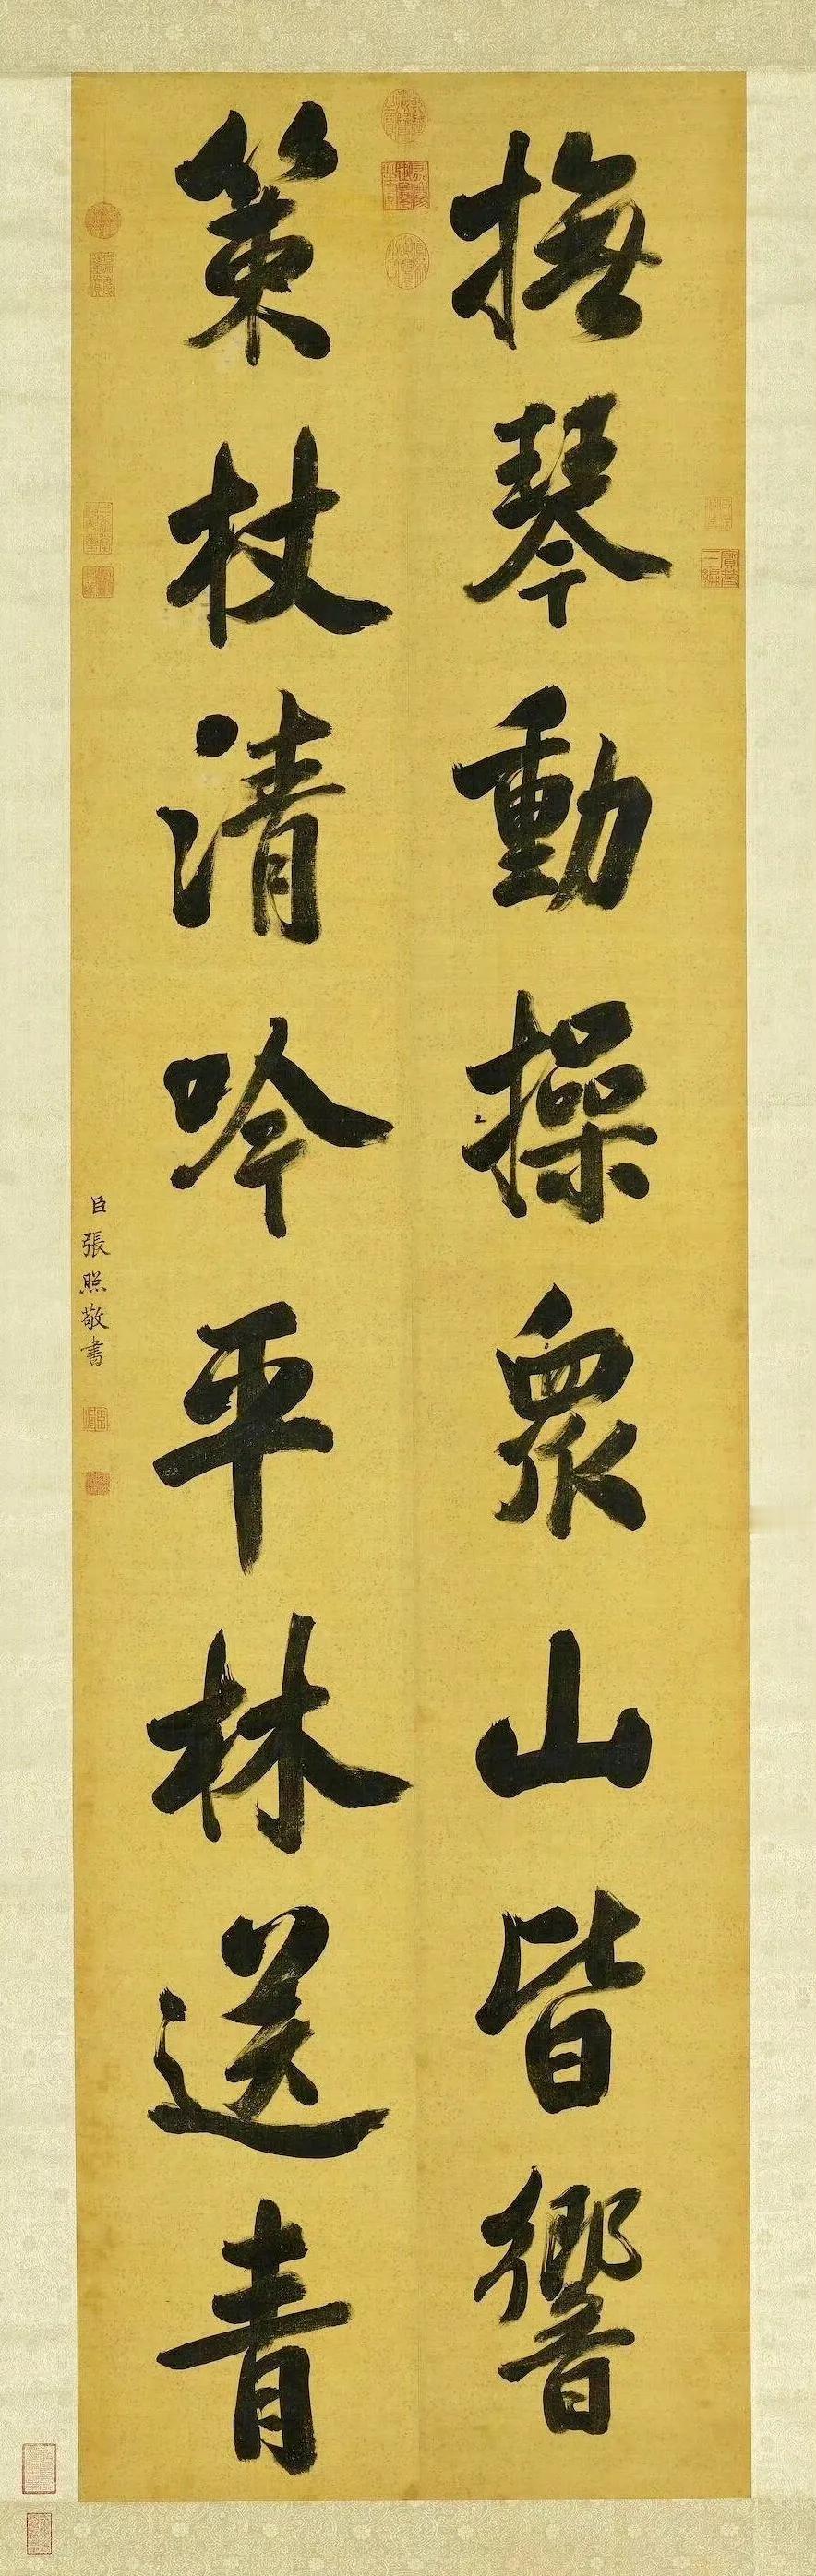 撫琴動操衆山皆響
策杖清吟平林送青
臣張照敬書